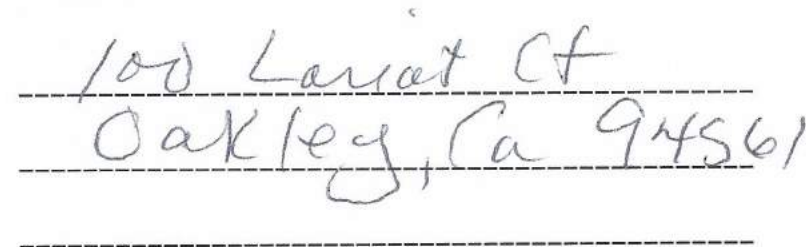 100 Lariat Ct
Oakley, Ca 94561